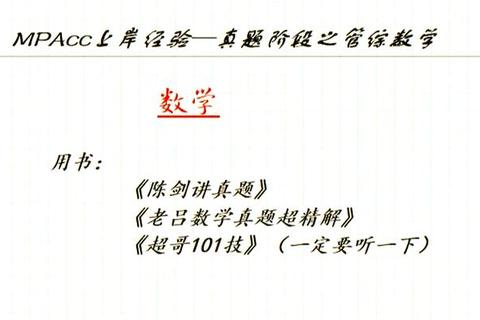 MPAcc上岸经验—真题阶段之管综数学
数学
用书：
《陈剑讲真题》
《老吕数学真题超精解》
《超哥101技》（一定要听一下）